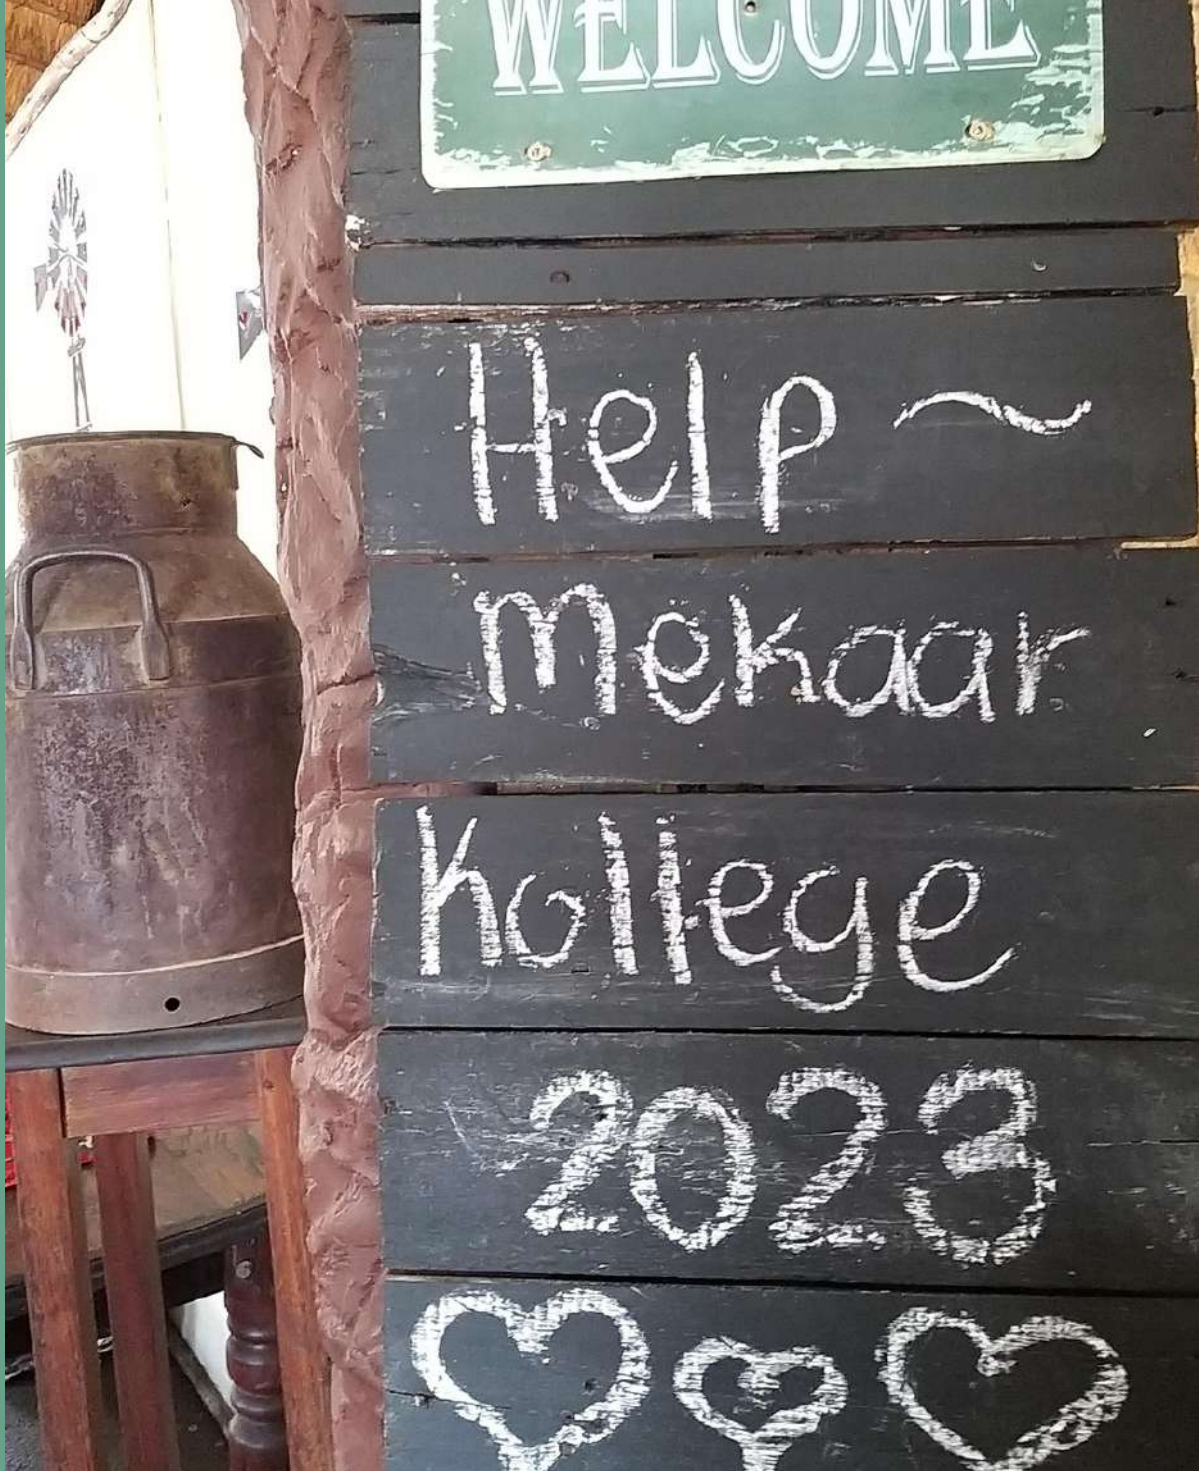 WELCOME
Help ~
Mekaar
Kollege
2023